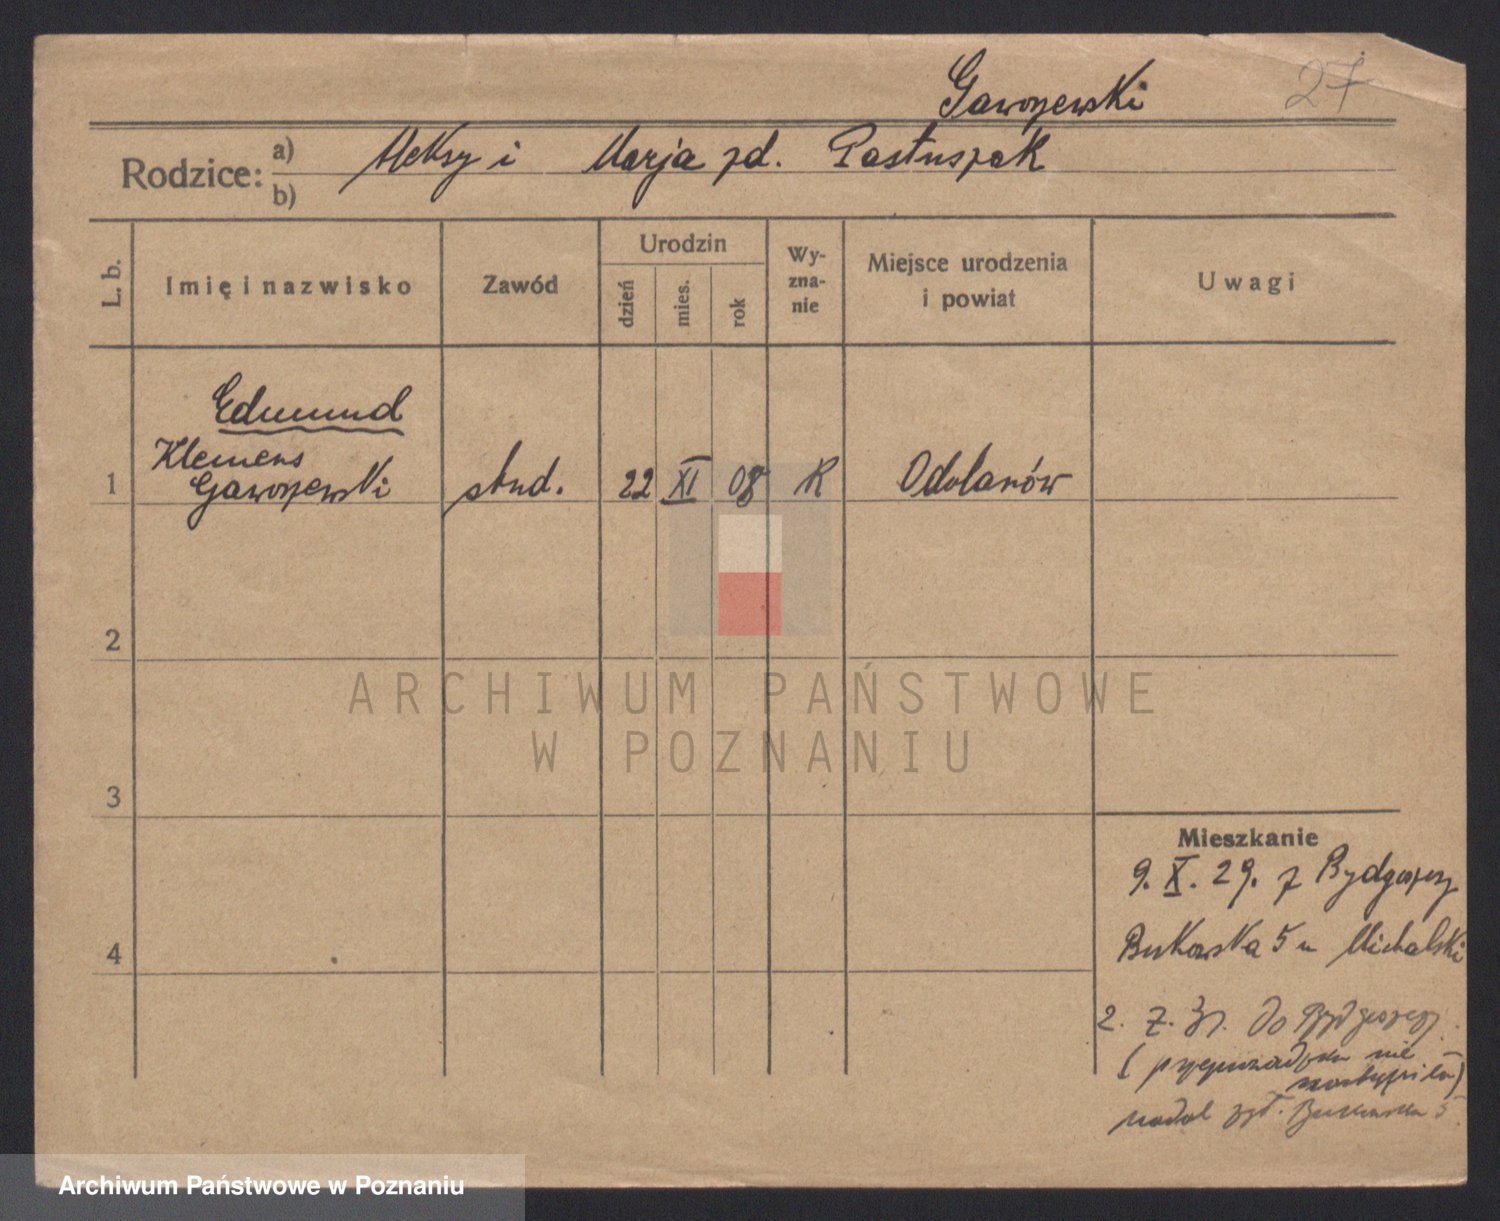 Gaworzewski
27
Rodzice: a) Aleksy i Marja zd. Pastuszak
b)
L. b.
Imię i nazwisko
Zawód
Urodzin
dzień
mies.
rok
Wy-
zna-
nie
Miejsce urodzenia
i powiat
Uwagi
Edmund
Klemens
1 Gaworzewski stud. 22 XI 08 R Odolanów
2
3
4
ARCHIWUM PAŃSTWOWE
W POZNANIU
Mieszkanie
9. X. 29. z Bydgoszczy
Bukowska 5 u Michalski
2. 7. 31. do Bydgoszczy
( przeprowadzka nie
nastąpiła)
nadal Bukowska 5.
Archiwum Państwowe w Poznaniu